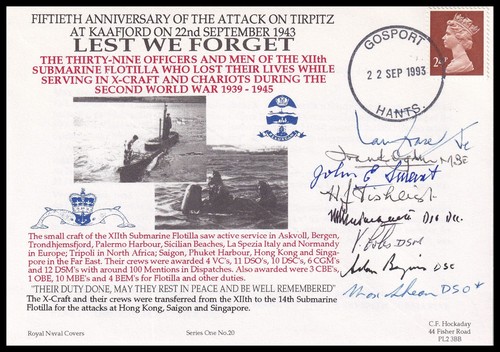 FIFTIETH ANNIVERSARY OF THE ATTACK ON TIRPITZ
AT KAAFJORD ON 22nd SEPTEMBER 1943
LEST WE FORGET
THE THIRTY-NINE OFFICERS AND MEN OF THE XIIth
SUBMARINE FLOTILLA WHO LOST THEIR LIVES WHILE
SERVING IN X-CRAFT AND CHARIOTS DURING THE
SECOND WORLD WAR 1939 - 1945
GOSPORT
22 SEP 1993
HANTS.
Ian Fraser VC
Frank Ogden MBE
John E Smart
DSC
DSM
DSC
Max Shean DSO
The small craft of the XIIth Submarine Flotilla saw active service in Askvoll, Bergen,
Trondhjemsfjord, Palermo Harbour, Sicilian Beaches, La Spezia Italy and Normandy
in Europe; Tripoli in North Africa; Saigon, Phuket Harbour, Hong Kong and Singa-
pore in the Far East. Their crews were awarded 4 VC's, 11 DSO's, 10 DSC's, 6 CGM's
and 12 DSM's with around 100 Mentions in Dispatches. Also awarded were 3 CBE's,
1 OBE, 10 MBE's and 4 BEM's for Flotilla and other duties.
"THEIR DUTY DONE, MAY THEY REST IN PEACE AND BE WELL REMEMBERED"
The X-Craft and their crews were transferred from the XIIth to the 14th Submarine
Flotilla for the attacks at Hong Kong, Saigon and Singapore.
Royal Naval Covers
Series One No.20
C.F. Hockaday
44 Fisher Road
PL2 3BB